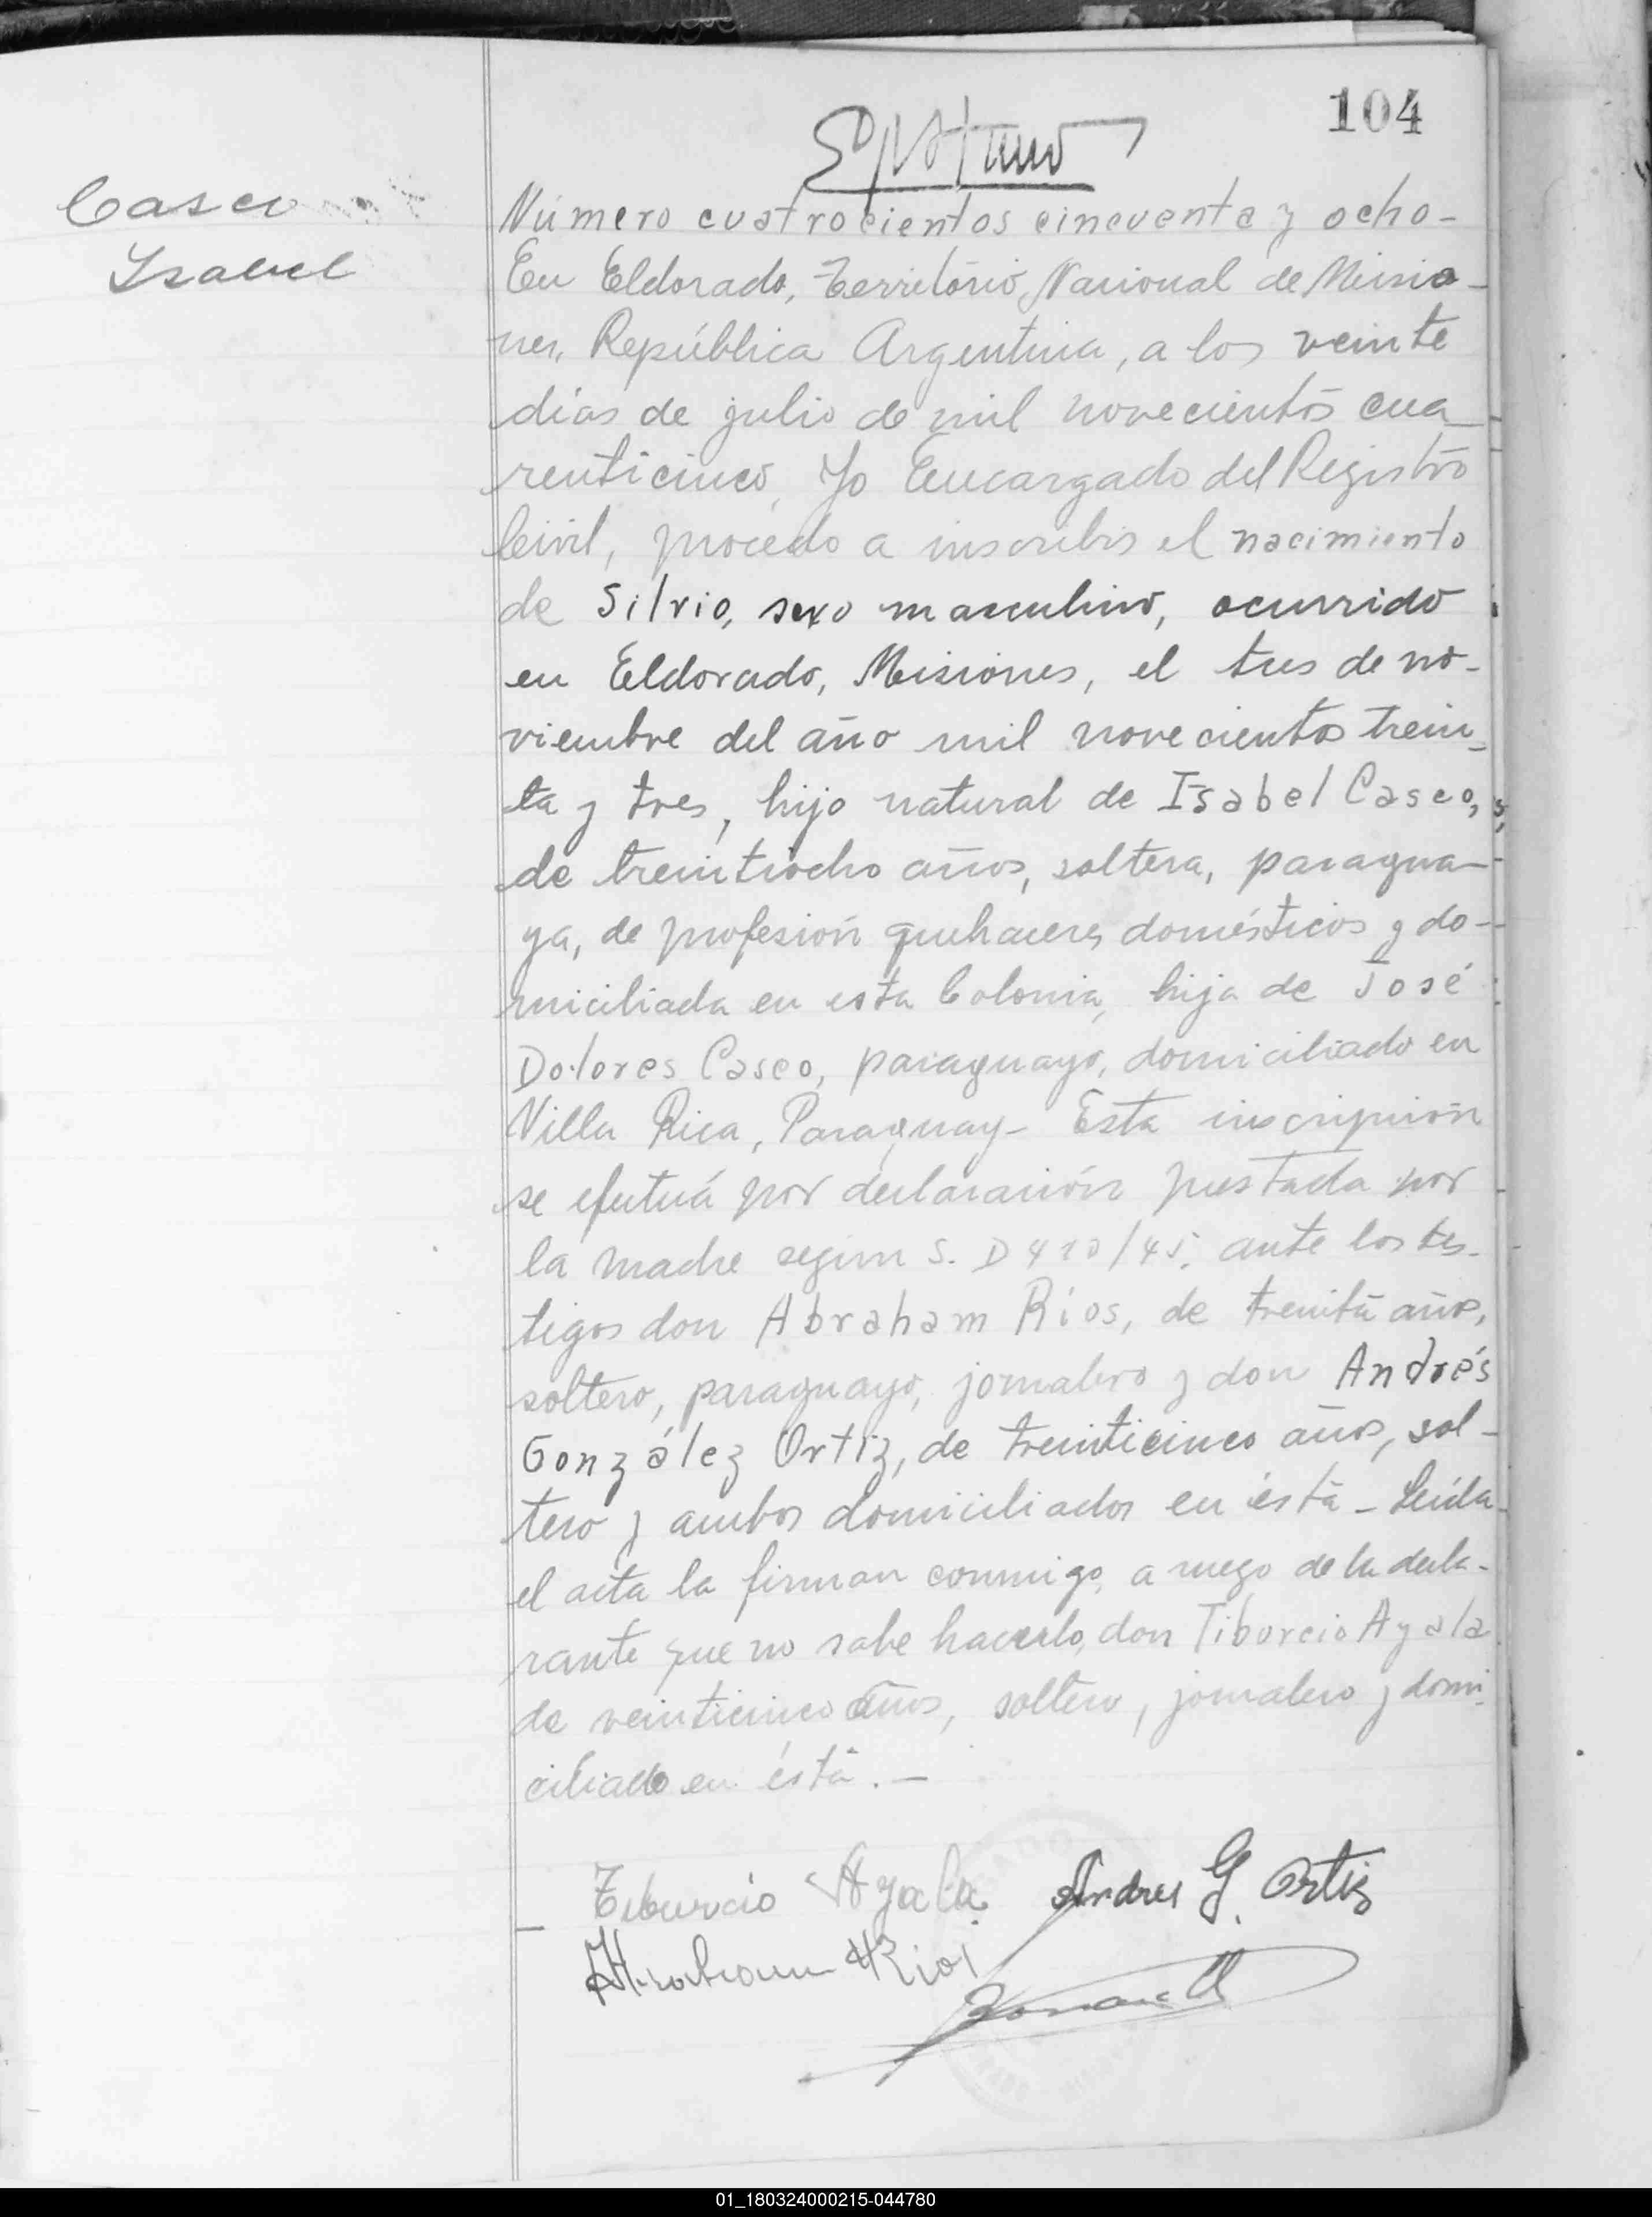 104
Casco
Isabel
Número cuatrocientos cincuenta y ocho-
En Eldorado, Territorio Nacional de Misio-
nes, República Argentina, a los veinte
días de julio de mil novecientos cua_
renticinco, Yo Encargado del Registro
Civil, procedo a inscribir el nacimiento
de Silvio, sexo masculino, ocurrido
en Eldorado, Misiones, el tres de no-
viembre del año mil novecientos trein_
ta y tres, hijo natural de Isabel Casco,
de treintiocho años, soltera, paragua-
ya, de profesión quehaceres domésticos y do-
miciliada en esta Colonia, hija de José
Dolores Casco, paraguayo, domiciliado en
Villa Rica, Paraguay- Esta inscripción
se efectuá por declaración prestada por
la madre según S. D 410/45, ante los tes-
tigos don Abraham Ríos, de treinta años,
soltero, paraguayo, jornalero y don Andrés
González Ortiz, de treinticinco años, sol-
tero y ambos domiciliados en ésta - Leída
el acta la firman conmigo, a ruego de la decla-
rante que no sabe hacerlo, don Tiburcio Ayala
de veinticinco años, soltero, jornalero y domi-
ciliado en ésta.-
Tiburcio Ayala Andres G. Ortiz
Rios
01_180324000215-044780